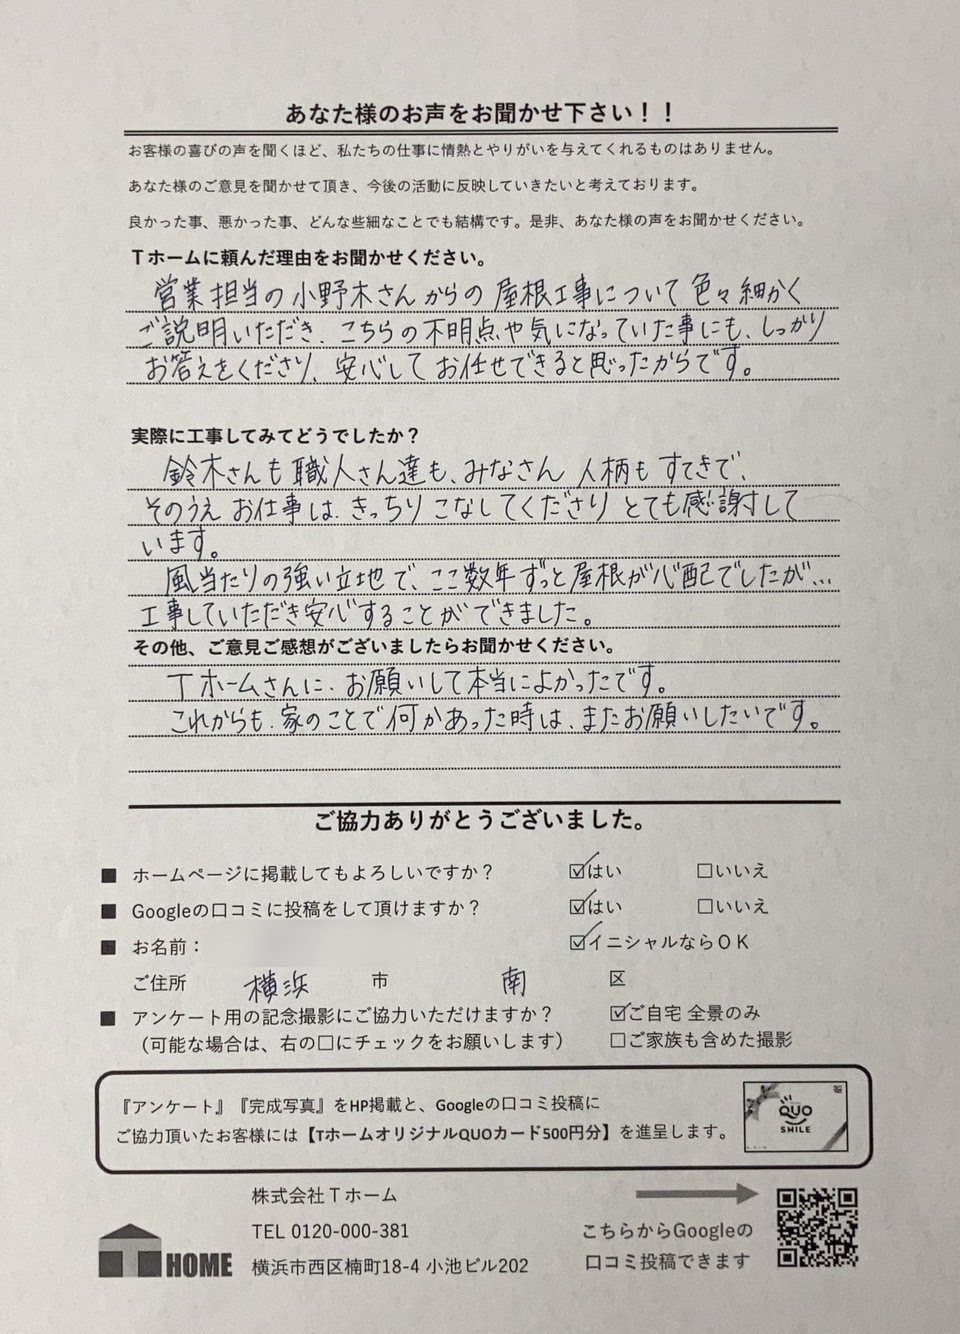 あなた様のお声をお聞かせ下さい！！
お客様の喜びの声を聞くほど、私たちの仕事に情熱とやりがいを与えてくれるものはありません。
あなた様のご意見を聞かせて頂き、今後の活動に反映していきたいと考えております。
良かった事、悪かった事、どんな些細なことでも結構です。是非、あなた様の声をお聞かせください。
Tホームに頼んだ理由をお聞かせください。
営業担当の小野木さんからの屋根工事について色々細かく
ご説明いただき、こちらの不明点や気になっていた事にも、しっかり
お答えをくださり、安心してお任せできると思ったからです。
実際に工事してみてどうでしたか？
鈴木さんも職人さん達も、みなさん人柄もすてきで、
そのうえお仕事は、きっちりこなしてくださりとても感謝して
います。
風当たりの強い立地で、ここ数年ずっと屋根が心配でしたが…
工事していただき安心することができました。
その他、ご意見ご感想がございましたらお聞かせください。
Tホームさんに、お願いして本当によかったです。
これからも、家のことで何かあった時は、またお願いしたいです。
ご協力ありがとうございました。
■ ホームページに掲載してもよろしいですか？ ☑はい □いいえ
■ Googleの口コミに投稿をして頂けますか？ ☑はい □いいえ
■ お名前： ☑イニシャルならOK
ご住所 横浜 市 南 区
■ アンケート用の記念撮影にご協力いただけますか？ ☑ご自宅 全景のみ
（可能な場合は、右の□にチェックをお願いします） □ご家族も含めた撮影
『アンケート』『完成写真』をHP掲載と、Googleの口コミ投稿に
ご協力頂いたお客様には【TホームオリジナルQUOカード500円分】を進呈します。
QUO
SMILE
株式会社Tホーム
TEL 0120-000-381
横浜市西区楠町18-4 小池ビル202
T HOME
こちらからGoogleの
口コミ投稿できます